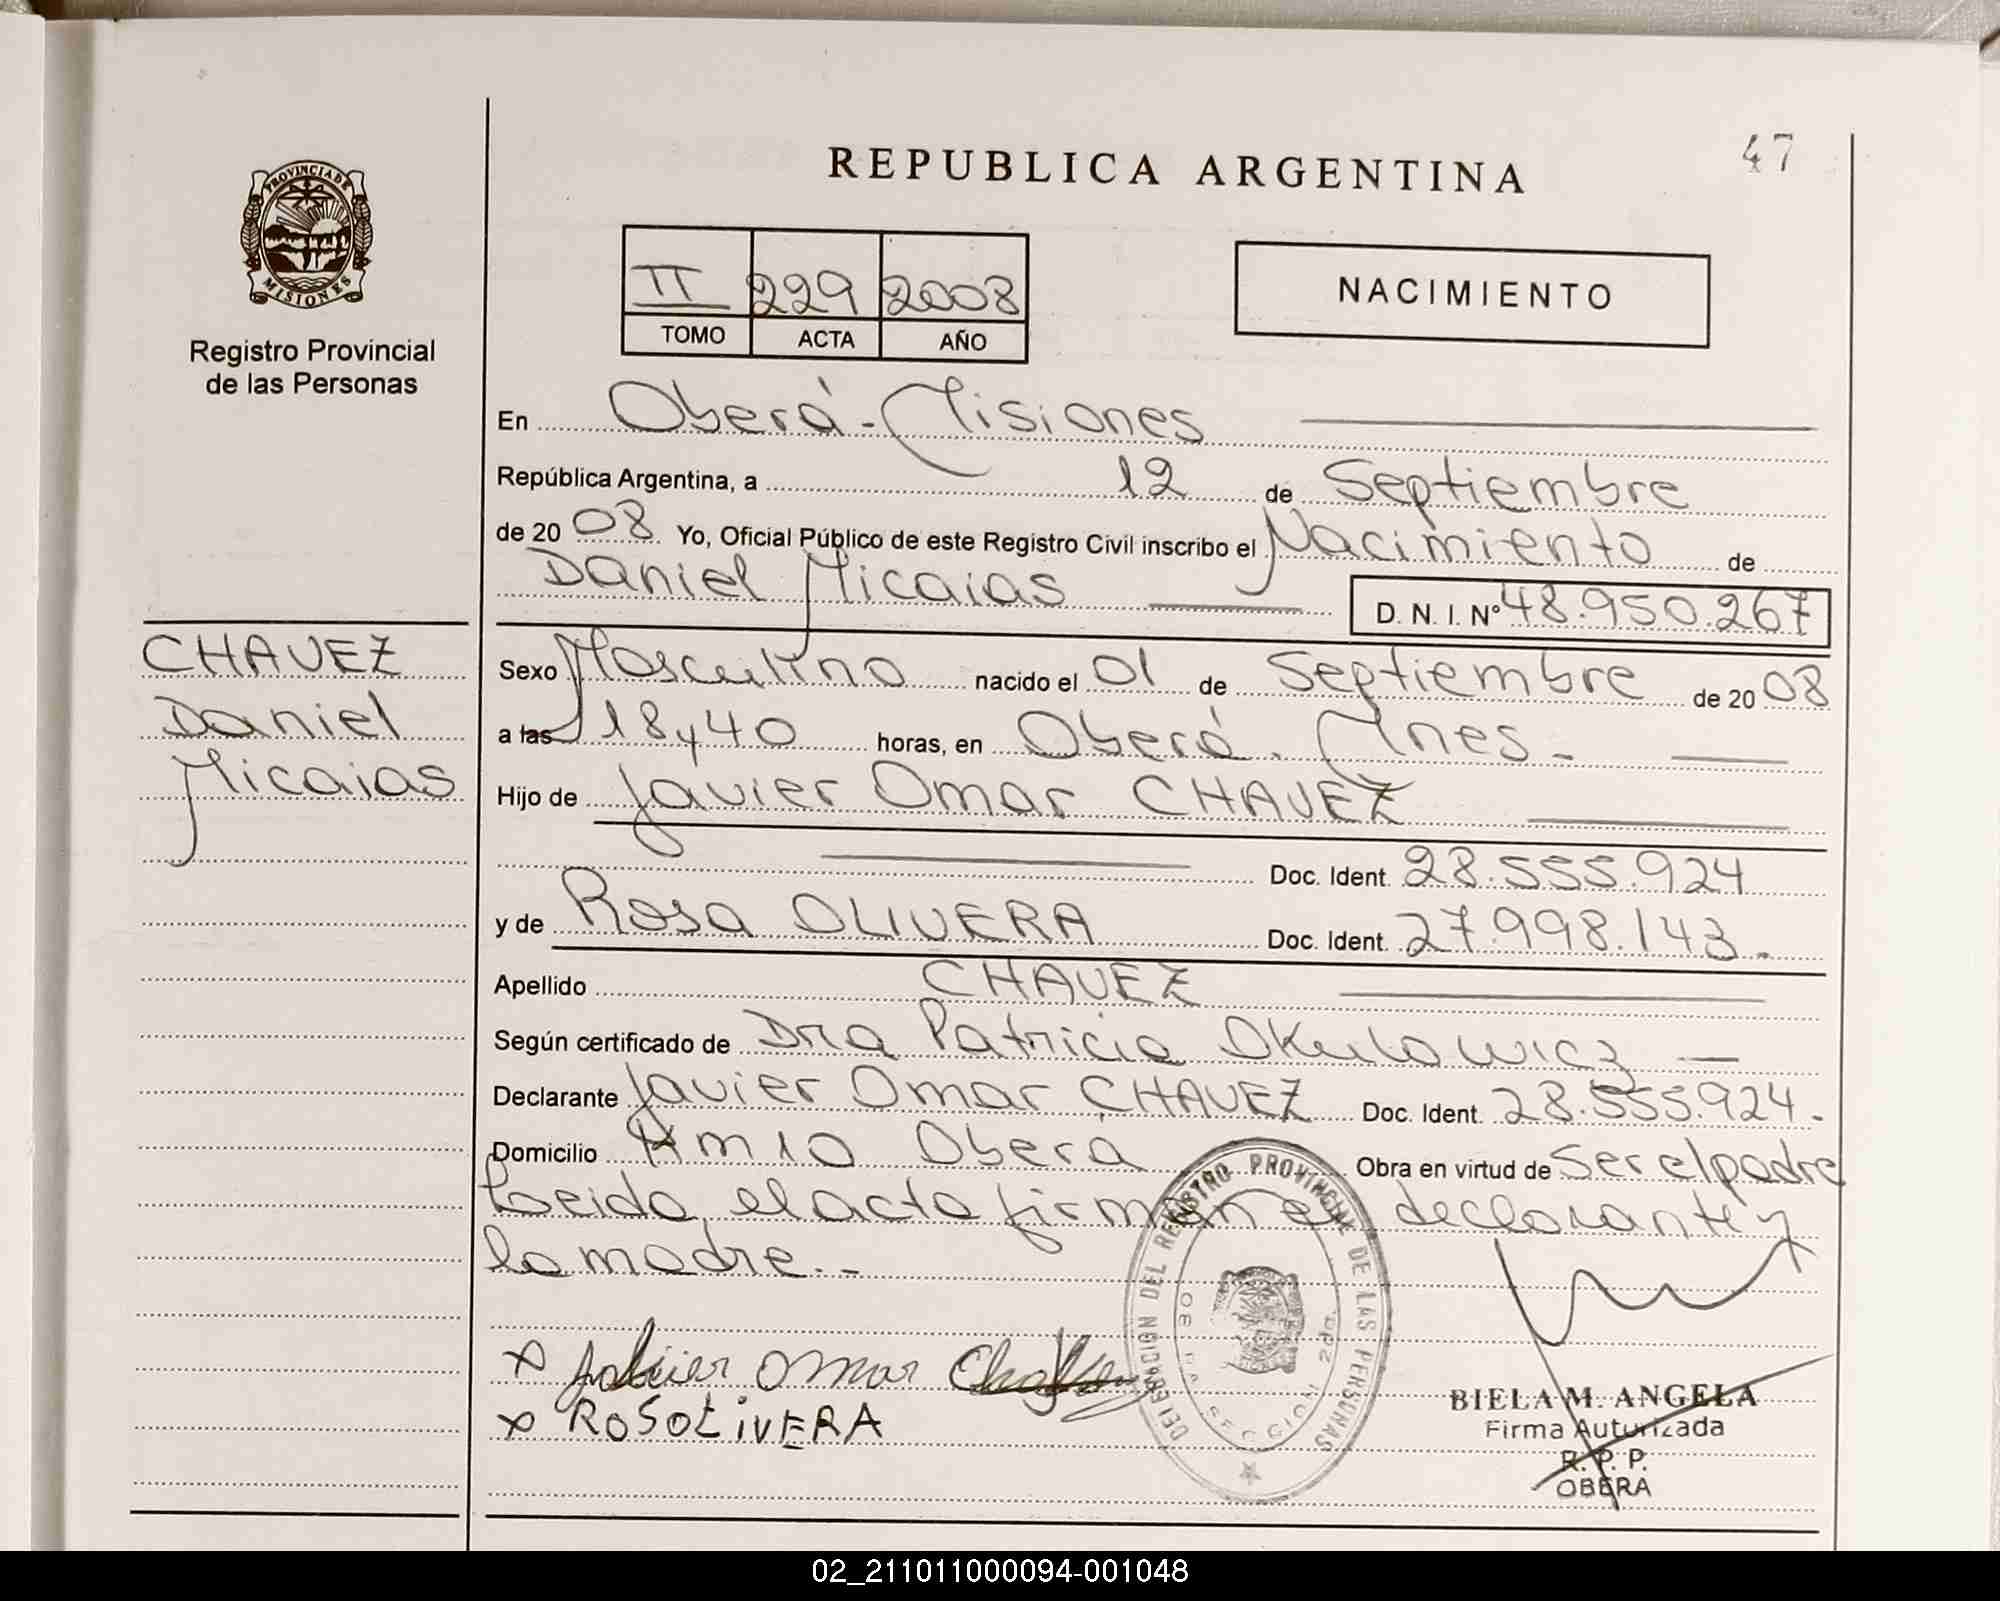 47
REPUBLICA ARGENTINA
PROVINCIA DE
MISIONES
Registro Provincial
de las Personas
II 229 2008
TOMO ACTA AÑO
NACIMIENTO
En Oberá - Misiones
República Argentina, a 12 de Septiembre
de 20 08 Yo, Oficial Público de este Registro Civil inscribo el Nacimiento de
Daniel Micaias D. N. I. Nº 48.950.267
CHAVEZ
Daniel
Micaias
Sexo Masculino nacido el 01 de Septiembre de 20 08
a las 18y40 horas, en Oberá. Mnes -
Hijo de Javier Omar CHAVEZ
Doc. Ident. 28.555.924
y de Rosa OLIVERA Doc. Ident. 27.998.143.-
Apellido CHAVEZ
Según certificado de Dra Patricia Okulowicz
Declarante Javier Omar CHAVEZ Doc. Ident. 28.555.924.-
Domicilio Km 10 Oberá Obra en virtud de Ser el padre
Leida el acta firman el declarante y
la madre.-
x Javier Omar
x ROSOLiVERA
DELEGACION DEL REGISTRO PROVINCIAL DE LAS PERSONAS
SECCION
BIELA M. ANGELA
Firma Autorizada
R. P. P.
OBERA
02_211011000094-001048